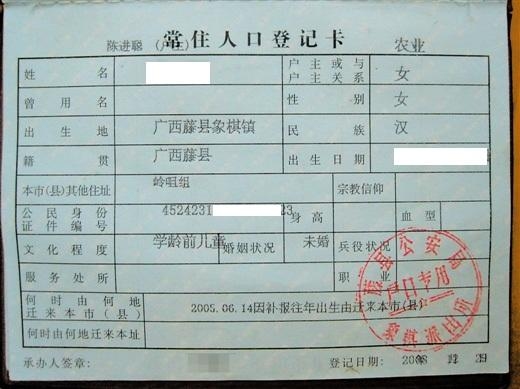 陈进聪 (户主) 常住人口登记卡 农业
姓名 户主或与户主关系 女
曾用名 性别 女
出生地 广西藤县象棋镇 民族 汉
籍贯 广西藤县 出生日期
本市(县)其他住址 岭咀组 宗教信仰
公民身份证件编号 4524231 23 身高 血型
文化程度 学龄前儿童 婚姻状况 未婚 兵役状况
服务处所 职业
何时由何地迁来本市(县) 2005.06.14因补报往年出生由迁来本市(县)
何时由何地迁来本址
承办人签章: 登记日期: 年 月
藤县公安局
户口专用
象棋派出所